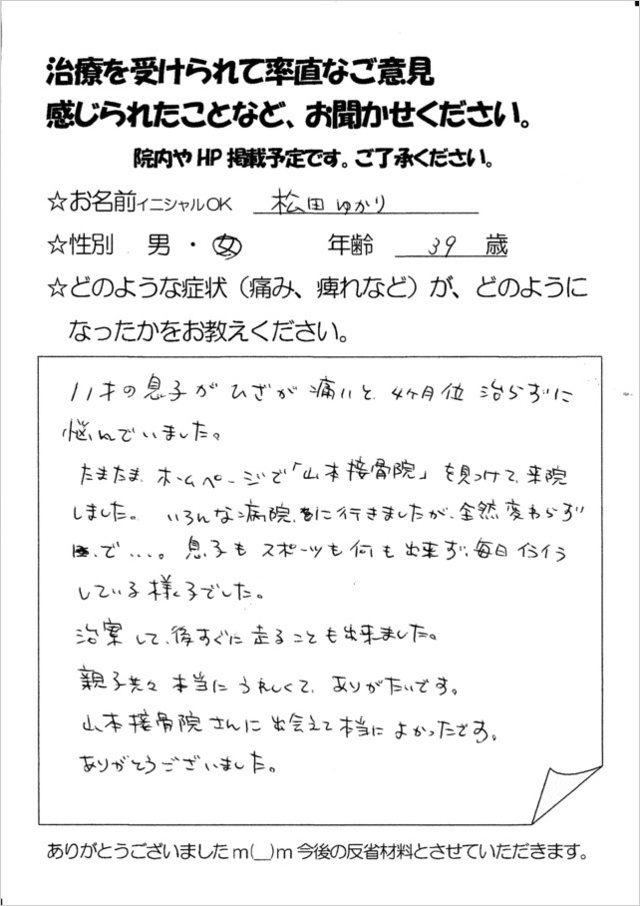 治療を受けられて率直なご意見
感じられたことなど、お聞かせください。
院内やHP掲載予定です。ご了承ください。
☆お名前イニシャルOK 松田ゆかり
☆性別 男・女 年齢 39 歳
☆どのような症状（痛み、痺れなど）が、どのように
なったかをお教えください。
11才の息子がひざが痛いと、4ヶ月位治らずに
悩んでいました。
たまたまホームページで「山本接骨院」を見つけて、来院
しました。いろんな病院に行きましたが、全然変わらず
で...。息子もスポーツも何も出来ず、毎日イライラ
している様子でした。
治案して、後すぐに走ることも出来ました。
親子共々本当にうれしくて、ありがたいです。
山本接骨院さんに出会えて本当によかったです。
ありがとうございました。
ありがとうございましたm(__)m今後の反省材料とさせていただきます。